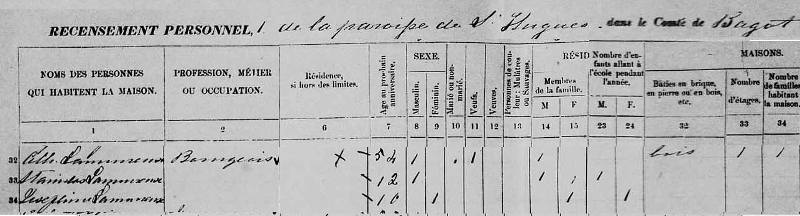 RECENSEMENT PERSONNEL, 1 de la paroisse de St Hugues dans le Comté de Bagot
NOMS DES PERSONNES QUI HABITENT LA MAISON.
PROFESSION, MÉTIER OU OCCUPATION.
Résidence, si hors des limites.
Age au prochain anniversaire.
SEXE.
Masculin.
Féminin.
Marié ou non-marié.
Veufs.
Veuves.
Personnes de couleur: Mulâtres ou Sauvages.
RÉSID
Membres de la famille.
M
F
Nombre d'enfants allant à l'école pendant l'année.
M.
F.
MAISONS.
Bâties en brique, en pierre ou en bois, etc.
Nombre d'étages.
Nombre de familles habitant la maison.
1 2 6 7 8 9 10 11 12 13 14 15 23 24 32 33 34
32 Lamoureux Bourgeois x 54 1 1 1 bois 1 1
33 Stanislas Lamoureux 12 1 1 1
34 Lamoureux 10 1 1 1